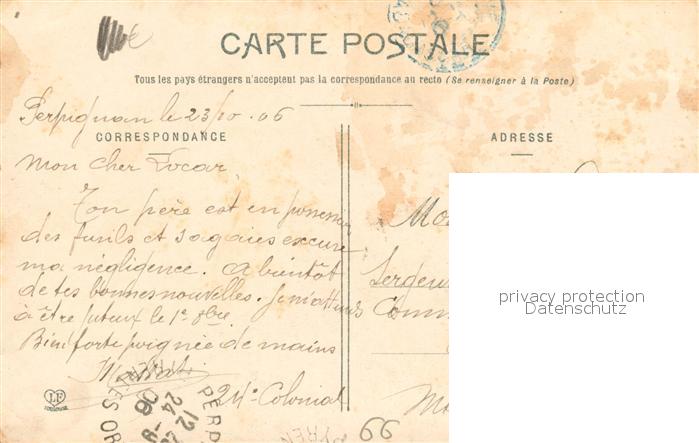 CARTE POSTALE
Tous les pays étrangers n'acceptent pas la correspondance au recto (Se renseigner à la Poste)
Perpignan le 23/ 06
CORRESPONDANCE
ADRESSE
Mon Cher
Ton père est en possession
des fusils et sagaies excuse
ma négligence. A bientôt
de tes bonnes nouvelles. Je m'attends
à être le 1er 8bre
Bien forte poignée de mains
24e Colonial
Mo
Sergen
Comm
privacy protection
Datenschutz
LF
TOULOUSE
PERP
12
24 -9
06
ES OR
PYREN
66